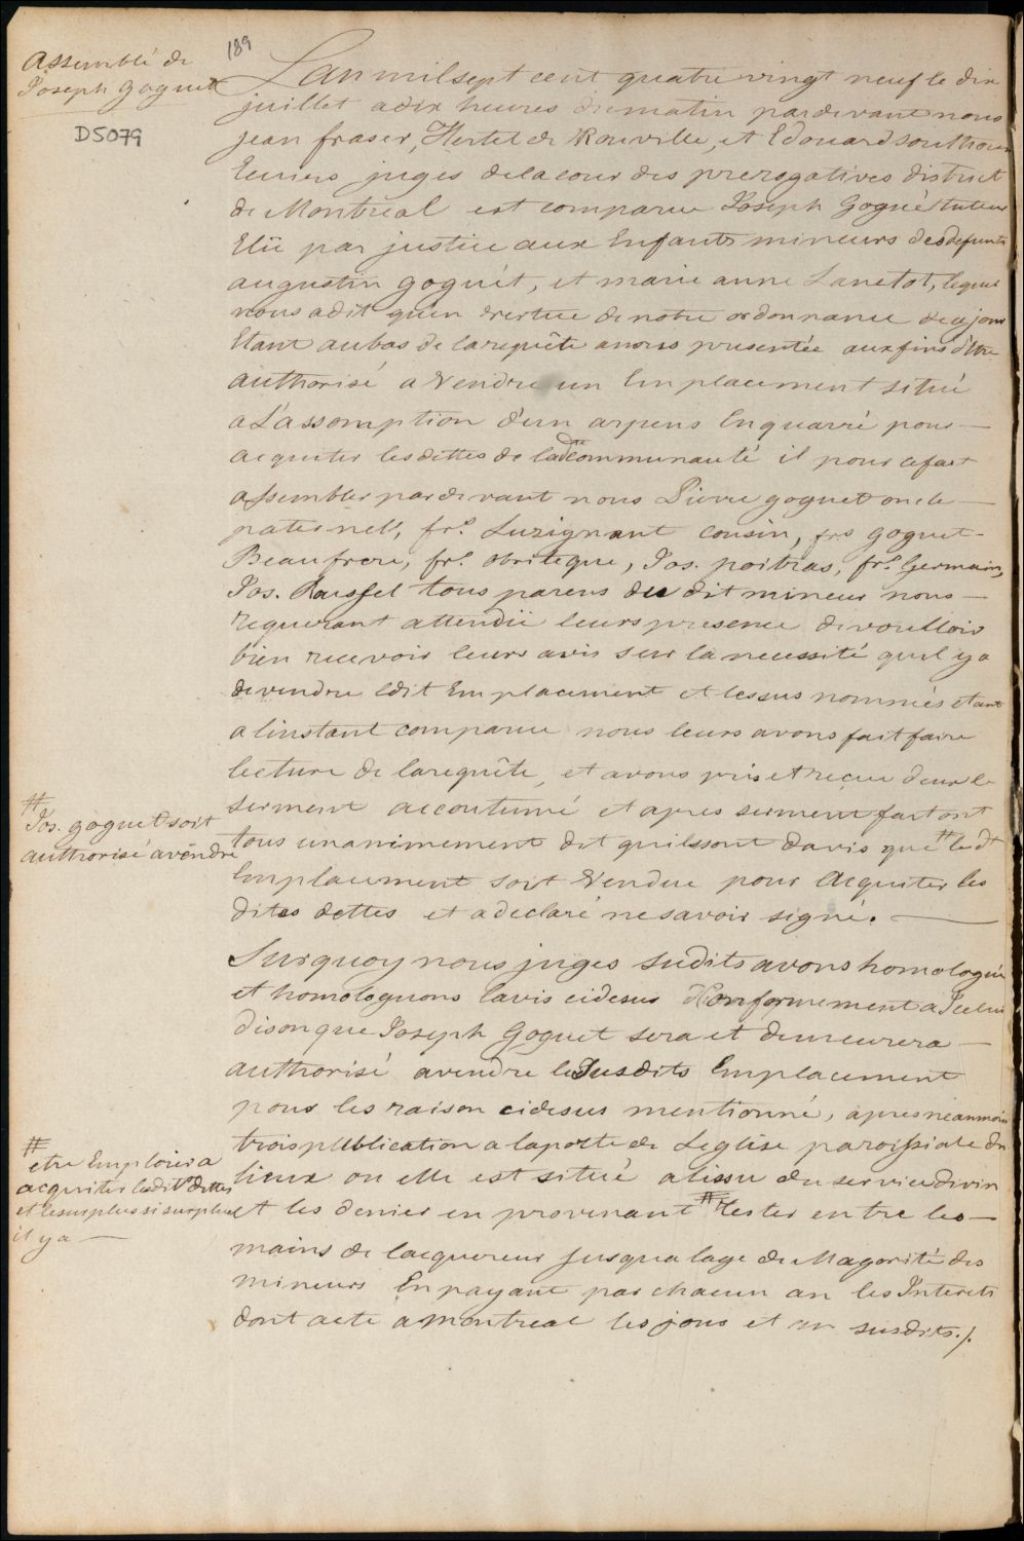 189
Assemblé de
Joseph Goguet
D5079
Lan mil sept cent quatre vingt neuf le dix
juillet a dix heures du matin pardevant nous
jean fraser, Hertel de Rouville, et Edouard Southouse
Ecuiers juges de la cour des prerogatives district
de Montreal est comparue Joseph Gogué tuteur
Elü par justice aux Enfants mineurs des defunts
augustin goguét, et marie anne Lanctot, lequel
nous a dit qu'en vertue de notre ordonnance de ce jour
Etant au bas de la requête a nous presentée aux fins d'être
authorisé a Vendre un Emplacement situé
a L'assomption d'un arpens En quarré pour —
acquiter les dettes de ladte communauté il pour ce fait
assembler pardevant nous Pierre goguet oncle —
paternell, frs. Luzignant cousin, frs goguet -
Beaufrere, frs. obriteque, Jos. poitras, frs. Germain,
Jos. Raissel tous parens du dit mineur nous —
requerant attendü leurs presence de voulloir
bien recevoir leurs avis sur la necessité quil y a
de vendre ledit Emplacement et les sus nommés etant
a linstant comparue nous leurs avons fait faire
lecture de la requête, et avons pris et reçue deux le
serment accoutumé et apres serment fait ont
tous unanimement dit quils sont davis que # le dt
Emplacement soit Vendue pour Acquiter les
dites dettes et a declaré ne savoir signé. —
# Jos. goguet soit
authorisé a vendre
Sur quoy nous juges sudits avons homologué
et homologuons lavis cidesus Conformement a Icelui
dison que Joseph Goguet sera et demeurera —
authorisé a vendre le Susdits Emplacement
pour les raison cidesus mentionné, apres neanmoin
trois publication a la porte de Leglise paroissiale du
lieux ou elle est situé a lissue du service divin
et les denier en provenant # rester entre les —
mains de lacquereur jusqua lage de Magorité des
mineurs En payant par chacun an les Interets
dont acte a montreal les jour et an susdits ./.
#
etre Emploier a
acquiter lesdites dettes
et le surplus si surplue
il y a —